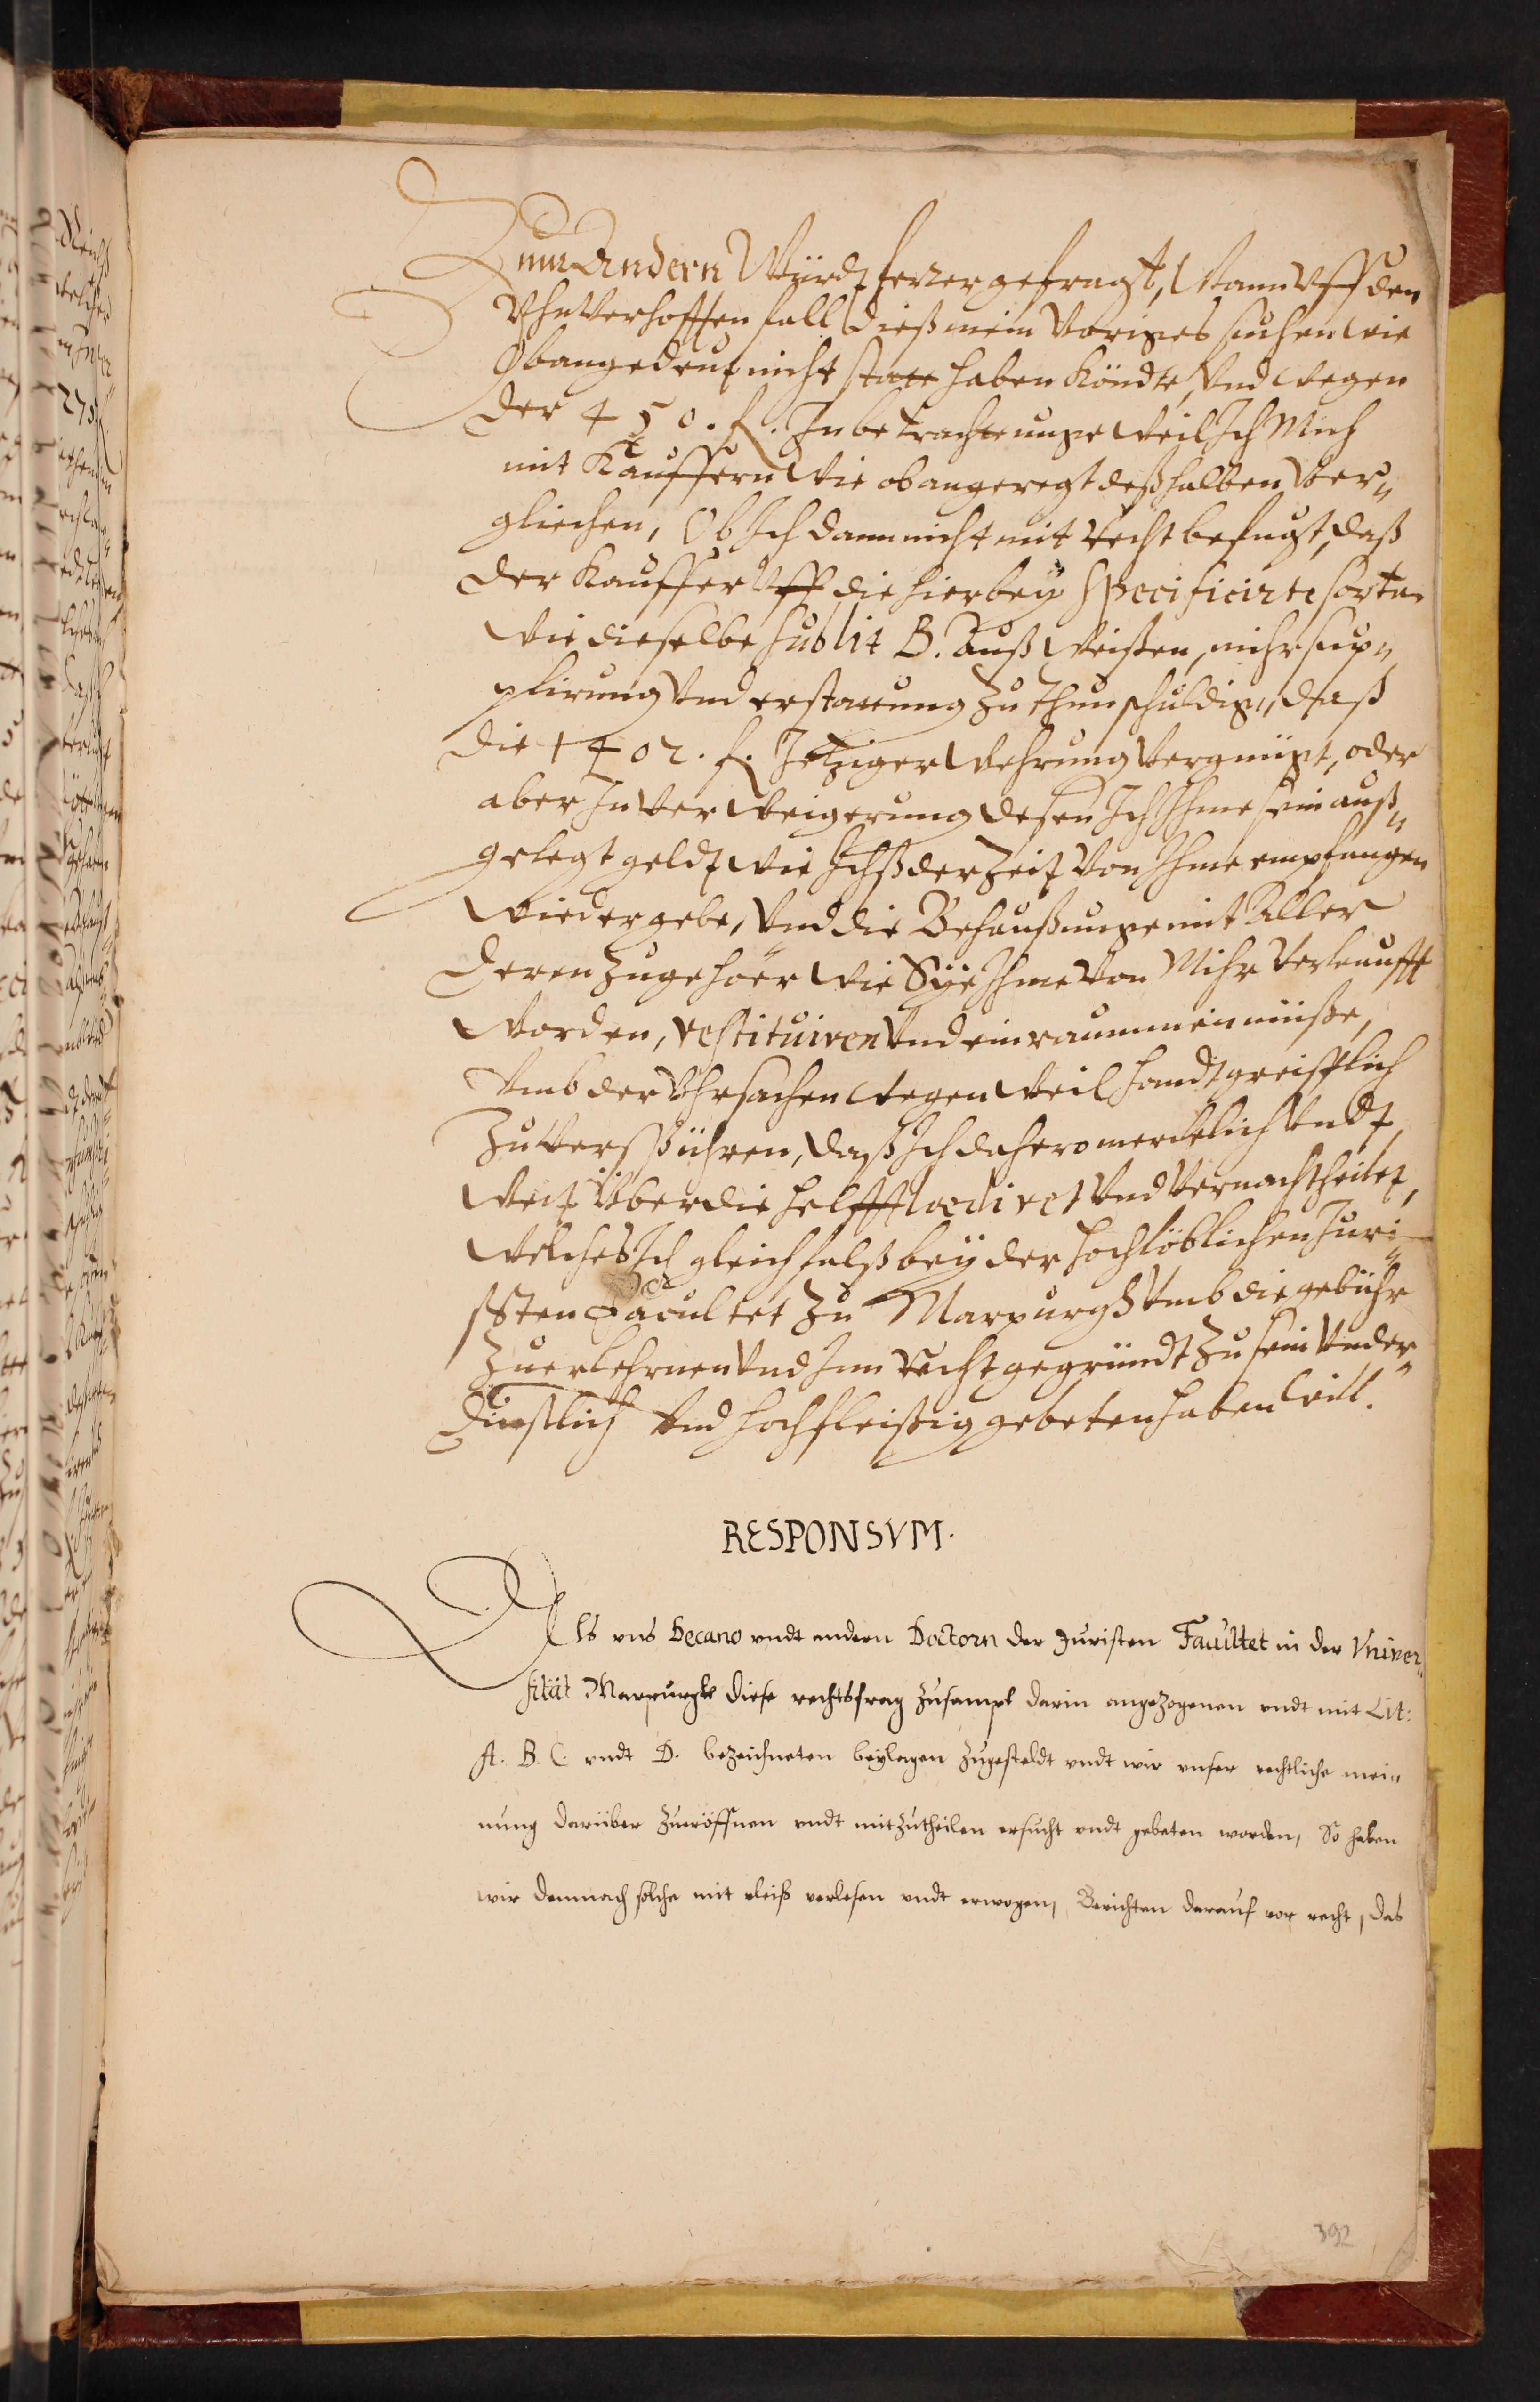 Zum Andern Würdt ferner gefragt, Wann Vff den
Vhnverhofften fall dieß mein Voriges suchen wie
Obangedeut nicht statt haben Köndte, Vnd wegen
der 450. f. In betrachtunge weil Ich Mich
mit Kauffern wie obangeregt deßhalben Ver„
gliechen, Ob Ich dann nicht mit recht befugt, daß
der Kauffer Vff die hierbey Specificirte sorten
wie dieselbe sub lit B. Auß weißen, mihr sup„
plirung Vnd erstattung Zu thun schuldig, daß
die 1402. f. Jetziger wehrung Vergnügt, oder
aber In Verweigerung desen Ich Ihme sein auß„
gelegt geldt wie Ichß der Zeit Von Ihme empfangen
wiedergebe, Vnd die Behaußunge mit Aller
deren Zugehöer wie Sÿe Ihme Von Mihr Verkaufft
worden, restituiren Vnd einraummen müße,
Vmb der Vhrsachen wegen weil handtgreifflich
Zu Verspühren, daß Ich dahero mercklich Vndt
weit Über die helfft lædiret Vnd Vernachtheilet,
welches Ich gleichfalß beÿ der hochlöblichen Juri„
sten Facultet Zu Marpurgk Vmb die gebühr
Zu erlehrnen Vnd Im recht gegründt Zu sein Vnder„
dienstlich Vnd hochfleißig gebeten haben will.
RESPONSVM.
Als vns Decano vndt andern Doctorn der Juristen Facultet in der Vniver„
sität Marpurgk diese rechtsfrag zusampt darin angezogenen vndt mit Lit:
A. B. C. vndt D. bezeichneten beÿlagen zugesteldt vndt wir vnser rechtliche mei„
nung darüber zueröffnen vndt mitzutheilen ersucht vndt gebeten worden, So haben
wir demnach solche mit vleiß verlesen vndt erwogen, Berichten darauf vor recht, das
392